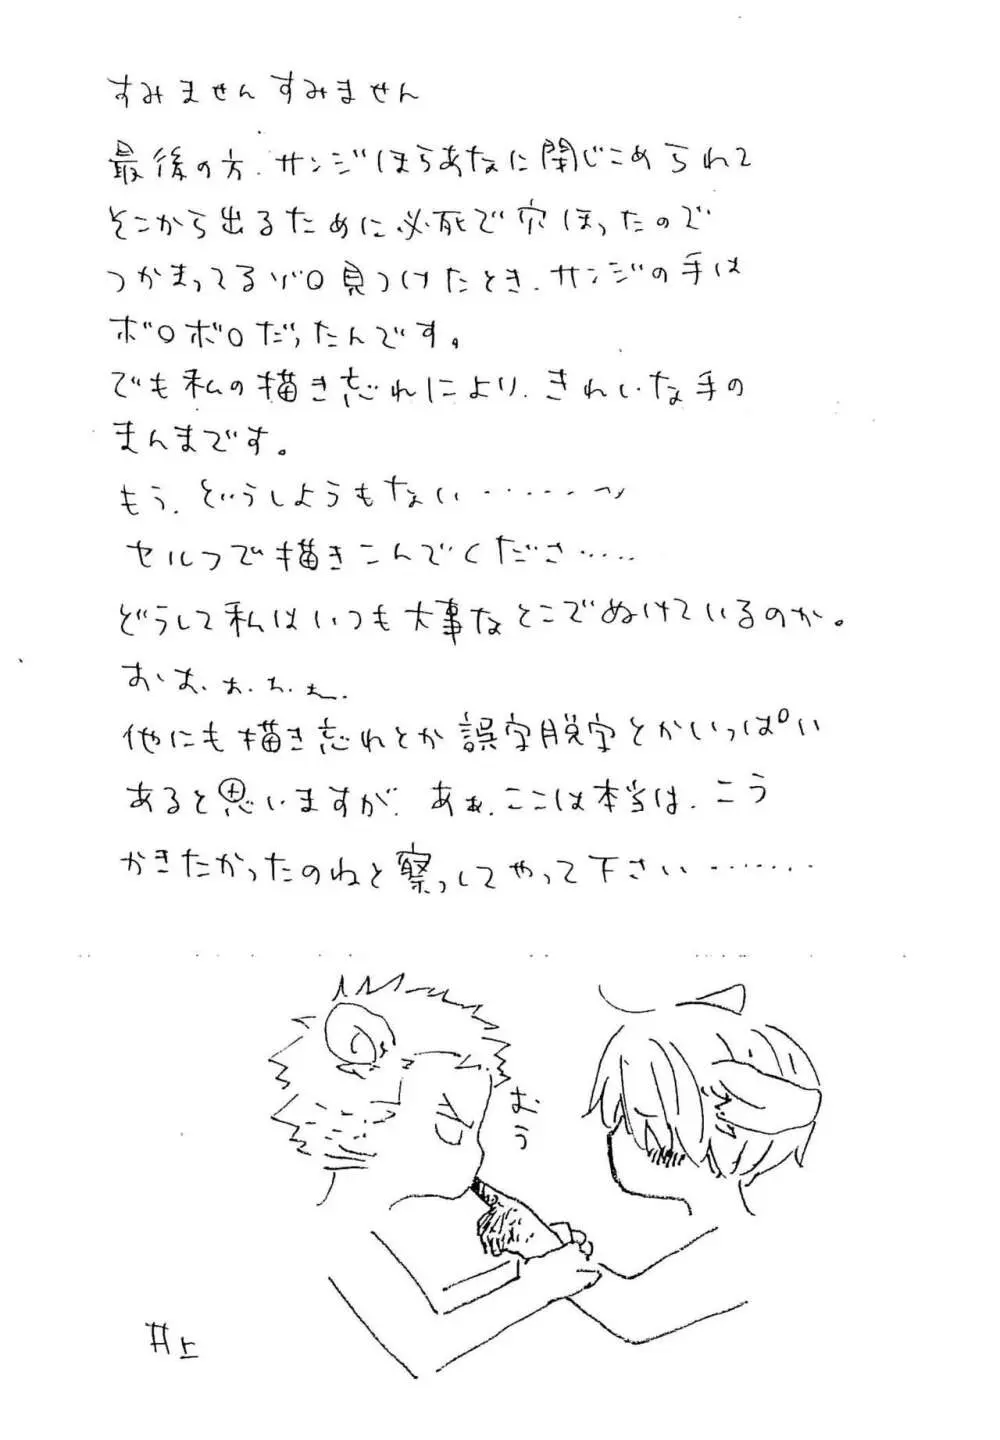 すみませんすみません
最後の方、サンジほらあなに閉じこめられて
そこから出るために必死で穴ほったので
つかまってるゾロ見つけたとき、サンジの手は
ボロボロだったんです。
でも私の描き忘れにより、きれいな手の
まんまです。
もう、どうしようもない・・・・・・・っ
セルフで描きこんでくださ・・・・・
どうして私はいつも大事なとこでぬけているのか。
おお、ぉ、ぉ、ぉ、
他にも描き忘れとか誤字脱字とかいっぱい
あると思いますが、あぁ、ここは本当は、こう
かきたかったのねと察っしてやって下さい・・・・・・・
おう
井上